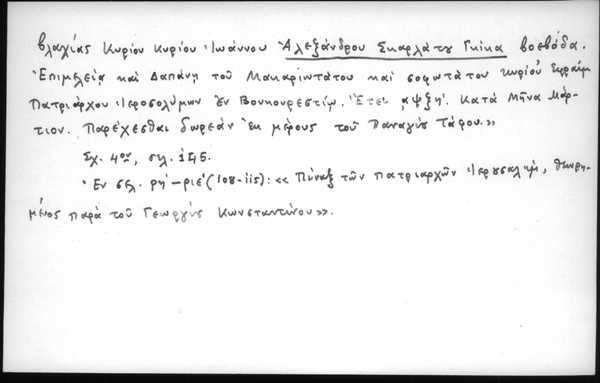 Βλαχίας Κυρίου Κυρίου Ἰωάννου Ἀλεξάνδρου Σκαρλάτου Γκίκα βοεβόδα.
Ἐπιμελείᾳ καὶ Δαπάνῃ τοῦ Μακαριντάτου καὶ σοφωτάτου κυρίου Ἐφραὶμ
Πατριάρχου Ἱεροσολύμων Ἐν Βουκουρεστίῳ. Ἔτει ͵αψξη'. Κατὰ Μῆνα Μάρ-
τιον. Παρέχεσθαι δωρεὰν ἐκ μέρους τοῦ Παναγίου Τάφου.»
Σχ. 4ον, σελ. 145.
Ἐν σελ. ρη'-ριε' (108-115): «Πίναξ τῶν πατριαρχῶν Ἱερουσαλήμ, θεωρη-
μένος παρὰ τοῦ Γεωργίου Κωνσταντίνου».